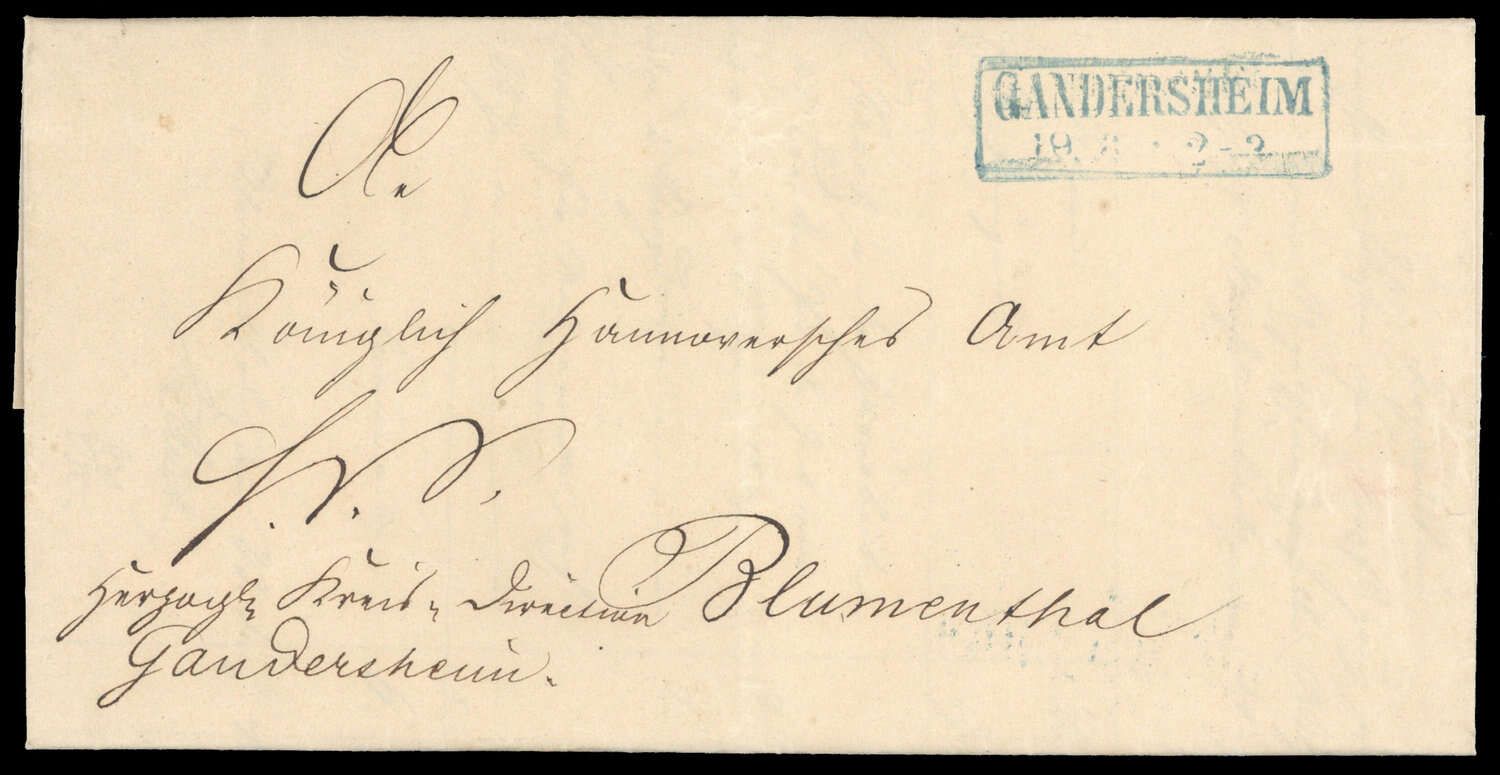 GANDERSHEIM
19 8 2-3
An
Königlich Hannoversches Amt
H. D. S.
Herzogl. Kreis-Direction Blumenthal
Gandersheim.